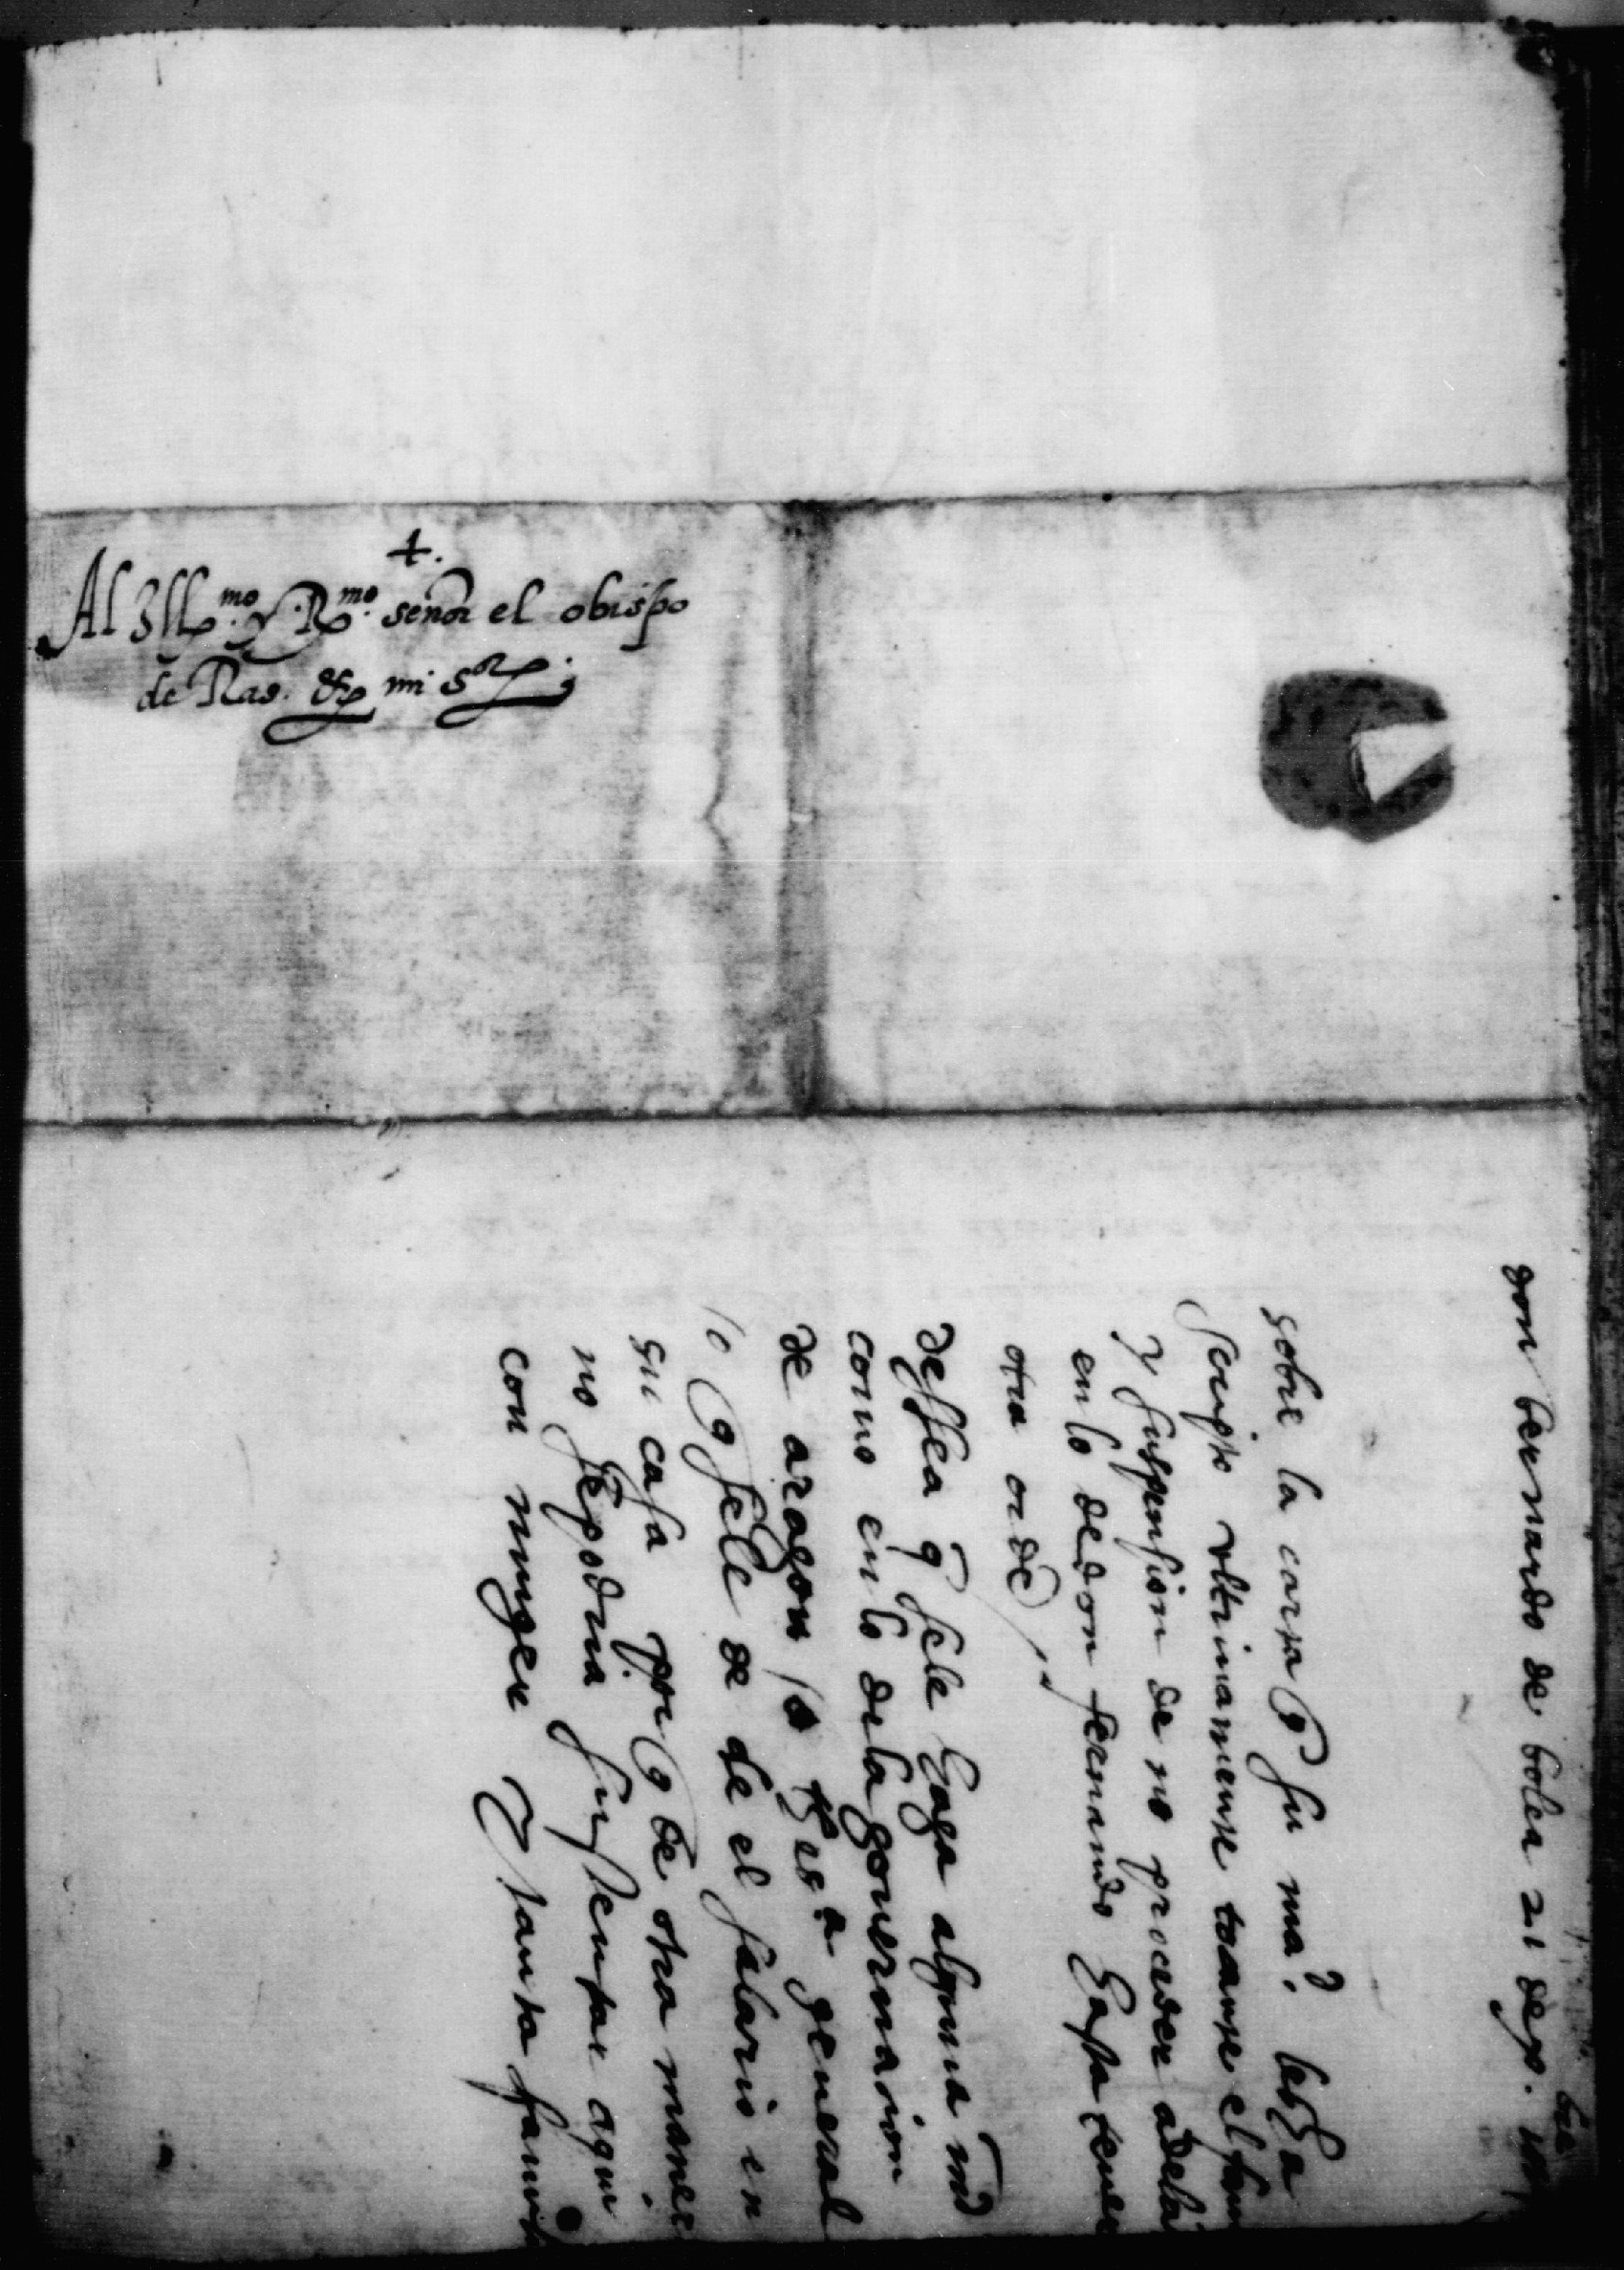 +.
Al Illmo. y. Rmo. señor el obispo
de Ras. &c mi Sor.
don bernardo de bolea 21 sep.
sobre la carta q̃ su mad. les ha
scripto ultimamente tocante el
y suspension de no proceder adelã
en lo de don fernando hasta tener
otra ordẽ
dessea q̃ se le haga alguna md
como en lo dela gouernacion
de aragon lo general
lo q̃ se le de de el salario en
su casa porq̃ de otra maner
no se podria sustentar aqui
con muger y tanta famil